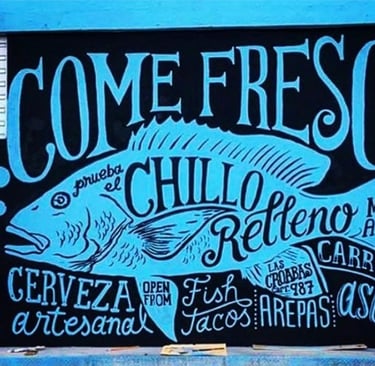 COME FRESC
prueba
el
CHILLO
Relleno
CERVEZA
artesanal
OPEN
FROM
Fish
Tacos
LAS
CROABAS
987
AREPAS
CARR